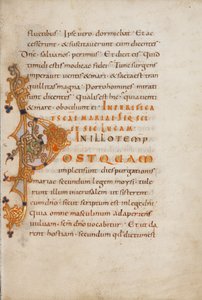 fluctibus Ipse vero dormiebat Et ac
cesserunt & suscitaverunt eum dicentes
Dne salva nos perimus Et dicit eis quid
timidi estis modicae fidei Tunc surgens
imperavit ventis & mari & facta est tran
quillitas magna Porro homines mirati
sunt dicentes Qualis est hic quia venti
& mare oboediunt ei
IN ILLO TEMP
POSTQUAM
impleti sunt dies purgationis
mariae secundum legem moysi tule
runt illum in hierusalem ut sisterent
eum dno sicut scriptum est in lege dni
Quia omne masculinum adaperiens
vulvam scm dno vocabitur Et ut da
rent hostiam secundum quod dictum est